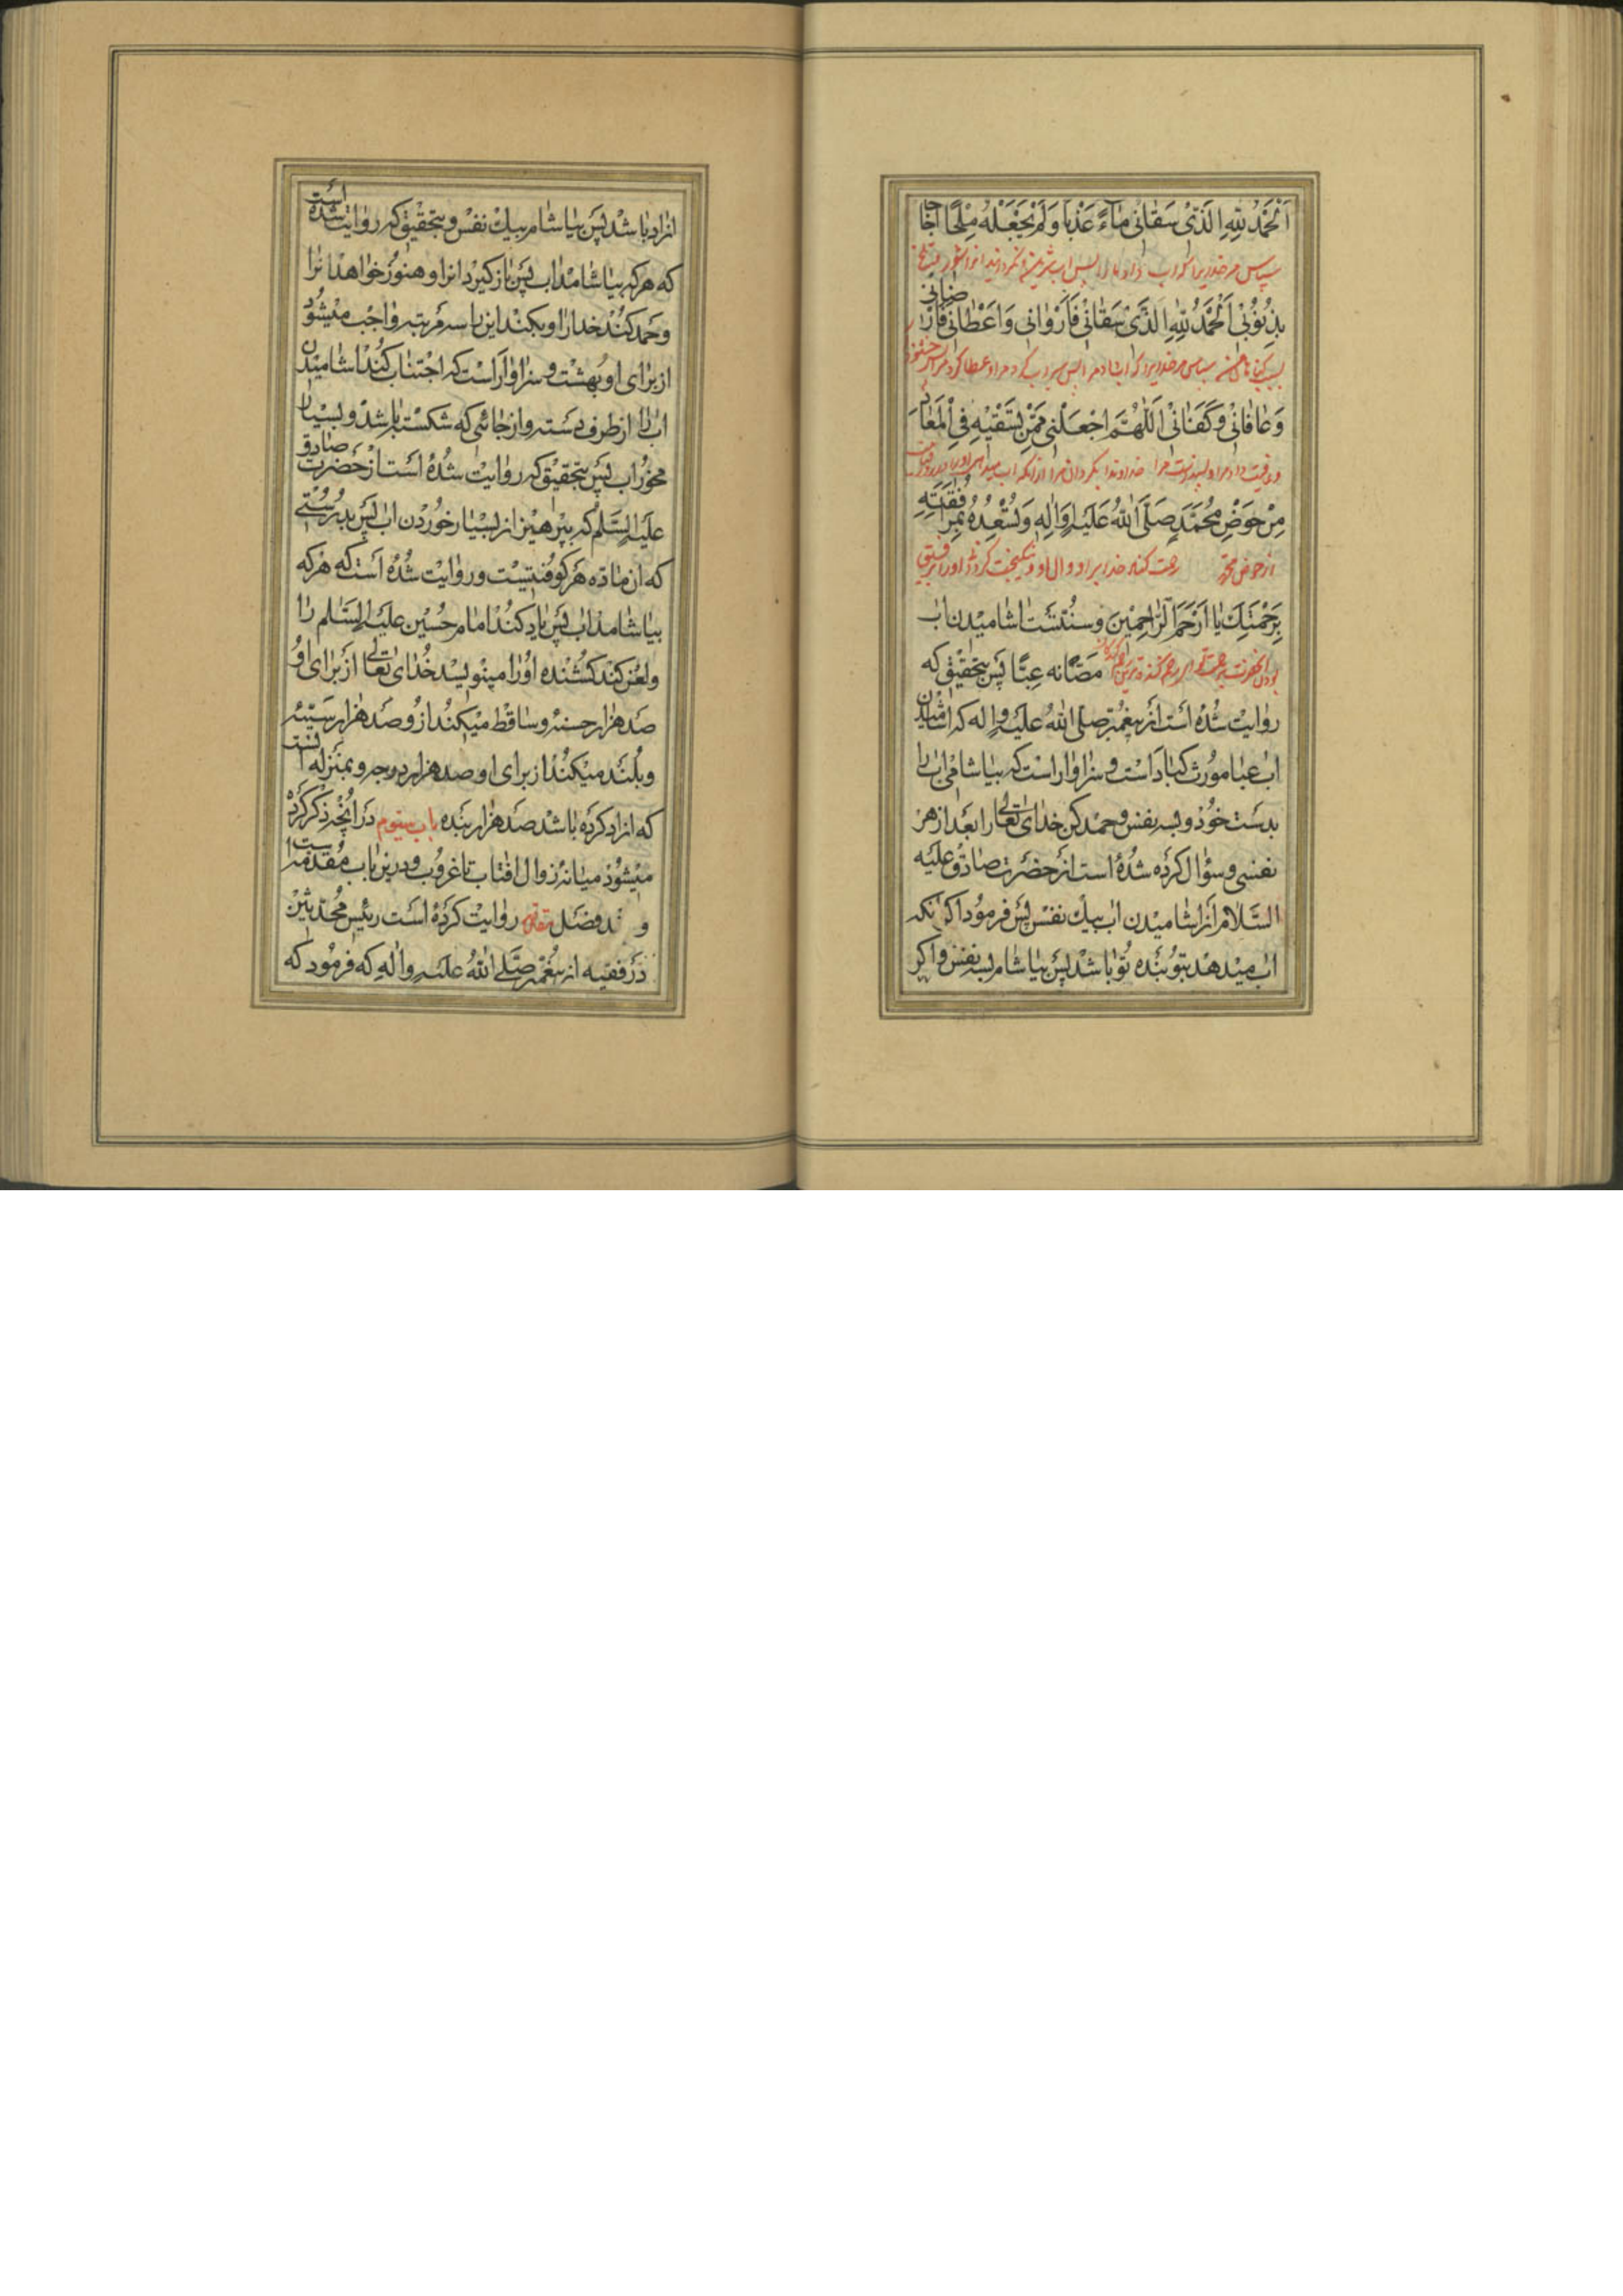 اَلْحَمْدُ لِلّهِ الَّذی سَقانی ماءً عَذْبًا وَلَمْ یَجْعَلْهُ مِلْحًا اُجاجًا
سپاس مر خدایرا که آب داد مارا پس آب شیرین و نگردانید انرا شور
بِذُنُوبی اَلْحَمْدُ لِلّهِ الَّذی سَقانی فَاَرْوانی وَاَعْطانی فَاَرْضانی
بسبب گناهان من سپاس مر خدایرا که آب داد مرا پس سیراب کرد مرا و عطا کرد مرا پس
وَعافانی وَکَفانی اَللّهُمَّ اجْعَلْنی مِمَّنْ تَسْقیهِ فِی الْمَعادِ
و عافیت داد مرا و مرا خداوندا بگردان مرا از انکه اب میدهی او را در روز
مِنْ حَوْضِ مُحَمَّدٍ صَلَّی اللهُ عَلَیهِ وَالِهِ وَتُسْعِدُهُ بِمُرافَقَتِهِ
از حوض محمد رحمت کند خدا بر او و ال او و نیکبخت کردانی او را برفیق
بِرَحْمَتِکَ یا اَرْحَمَ الرّاحِمینَ و سنتست اشامیدن اب
بودن انحضرت برحمت تو ای رحم کننده ترین رحم کنندکان مصّا نه عبّا پس بتحقیق که
روایت شده است از پیغمبر صلی الله علیه و اله که اشامیدن
اب عبا مورث کباد است و سزاوار است که بیاشامی اب را
بدست خود و بسه نفس و حمد کن خدای تعالی را بعد از هر
نفسی و سؤال کرده شده است از حضرت صادق علیه
السلام از اشامیدن اب بیک نفس پس فرمود اکر انکه
اب میدهد بتو بنده تو باشد پس بیاشام بسه نفس و اکر
ازاد باشد پس بیاشام بیک نفس و بتحقیق که روایت شده است
که هر که بیاشامد اب پس باز کیرد انرا و هنوز خواهد انرا
و حمد کند خدا را و بکند این را سه مرتبه واجب میشود
از برای او بهشت و سزاوار است که اجتناب کند اشامیدن
اب را از طرف دسته و از جائی که شکسته باشد و بسیار
مخور اب پس بتحقیق که روایت شده است از حضرت صادق
علیه السلم که بپرهیز از بسیار خوردن اب پس بدرستی
که ان ماده هر کوفتیست و روایت شده است که هر که
بیاشامد اب پس یاد کند امام حسین علیه السلم را
و لعن کند کشنده او را مینویسد خدای تعالی از برای او
صد هزار حسنه و ساقط میکند از او صد هزار سیئه
و بلند میکند از برای او صد هزار درجه و بمنزله انست
که ازاد کرده باشد صد هزار بنده باب سیوم در انچه ذکر کرده
میشود میانه زوال افتاب تا غروب و درین باب مقدمه است
و فصل مقدمه روایت کرده است رئیس محدثین
در فقیه از پیغمبر صلی الله علیه و اله که فرمود که